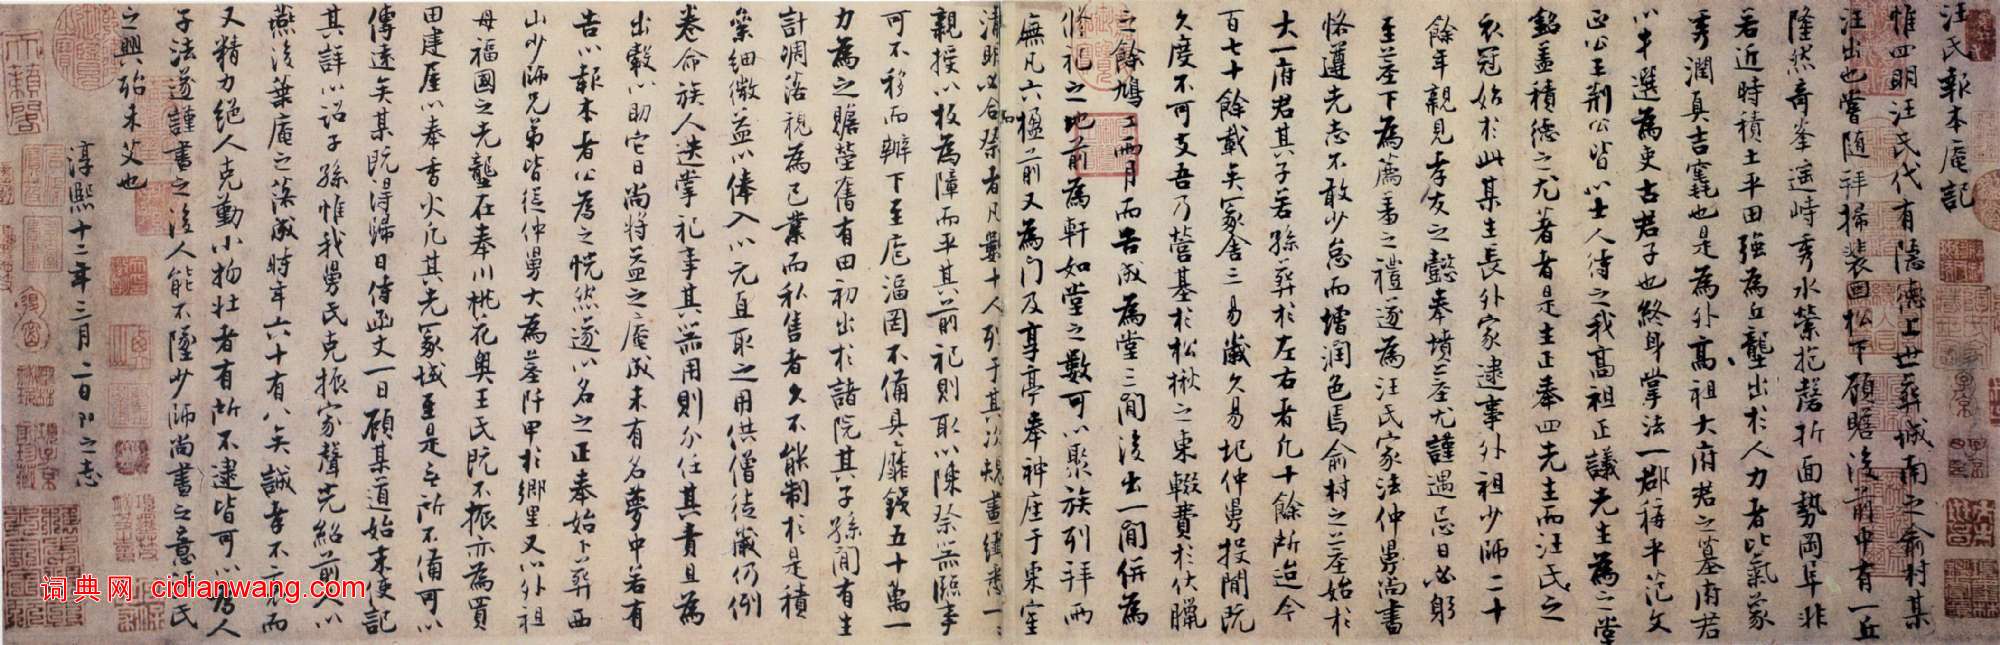 汪氏報本庵記
惟四明汪氏代有隱德上世葬城南之俞村某
汪出也嘗随拜掃裴回松下顧瞻後前中有一丘
隆然奇峯遥峙秀水縈抱磬折面勢岡阜非
若近時積土平田強為丘壟出於人力者比氣象
秀潤真吉宅也是為外高祖大府君之墓府君
以才選為吏古君子也終身掌法一郡稱平范文
正公王荆公皆以士人待之我高祖正議先生為之堂
銘盖積德之尤著者是生正奉四先生而汪氏之
衣冠始於此某生長外家逮事外祖少師二十
餘年親見孝友之懿奉墳墓尤謹遇忌日必躬
至墓下為薦羞之禮遂為汪氏家法仲舅尚書
恪遵先志不敢少怠而增潤色焉俞村之墓始於
大一府君其子若孫葬於左右者凡十餘所迨今
百七十餘載矣冢舍三易歲久易圮仲舅投閒既
久度不可支吾乃營基於松楸之東輟費於伏臘
之餘鳩工兩月而告成為堂三間後出一間併為
脩祀之地前為軒如堂之數可以聚族列拜兩
廡凡六楹前又為門及享亭奉神座于東室
清明必合祭者凡數十人列于其次規畫纖悉一一
親授以牧為障而平其前祀則取以陳祭器臨事
可不移而辦下至庖湢罔不備具靡錢五十萬一
力為之贍塋舊有田初出於諸院其子孫間有生
計凋落視為己業而私售者久不能制於是積
絫細微益以俸入以元直取之用供僧徒歲仍例
卷命族人迭掌祀事其器用則分任其責且為
出縠以助它日尚將益之庵成未有名夢中若有
告以報本者公為之怳然遂以名之正奉始卜葬西
山少師兄弟皆從仲舅大為墓阡甲於鄉里又以外祖
母福國之先壟在奉川桃花奥王氏既不振亦為買
田建屋以奉香火凡其先冢域至是無所不備可以
傳遠矣某既得歸日侍函丈一日顧某道始末使記
其詳以詔子孫惟我舅氏克振家聲光紹前人以
燕後葉庵之落成時年六十有八矣誠孝不衰而
又精力絕人克勤小物壮者有所不逮皆可以為人
子法遂謹書之後人能不墜少師尚書之意汪氏
之興殆未艾也
淳熙十二年三月二日


词典网 cidianwang.com